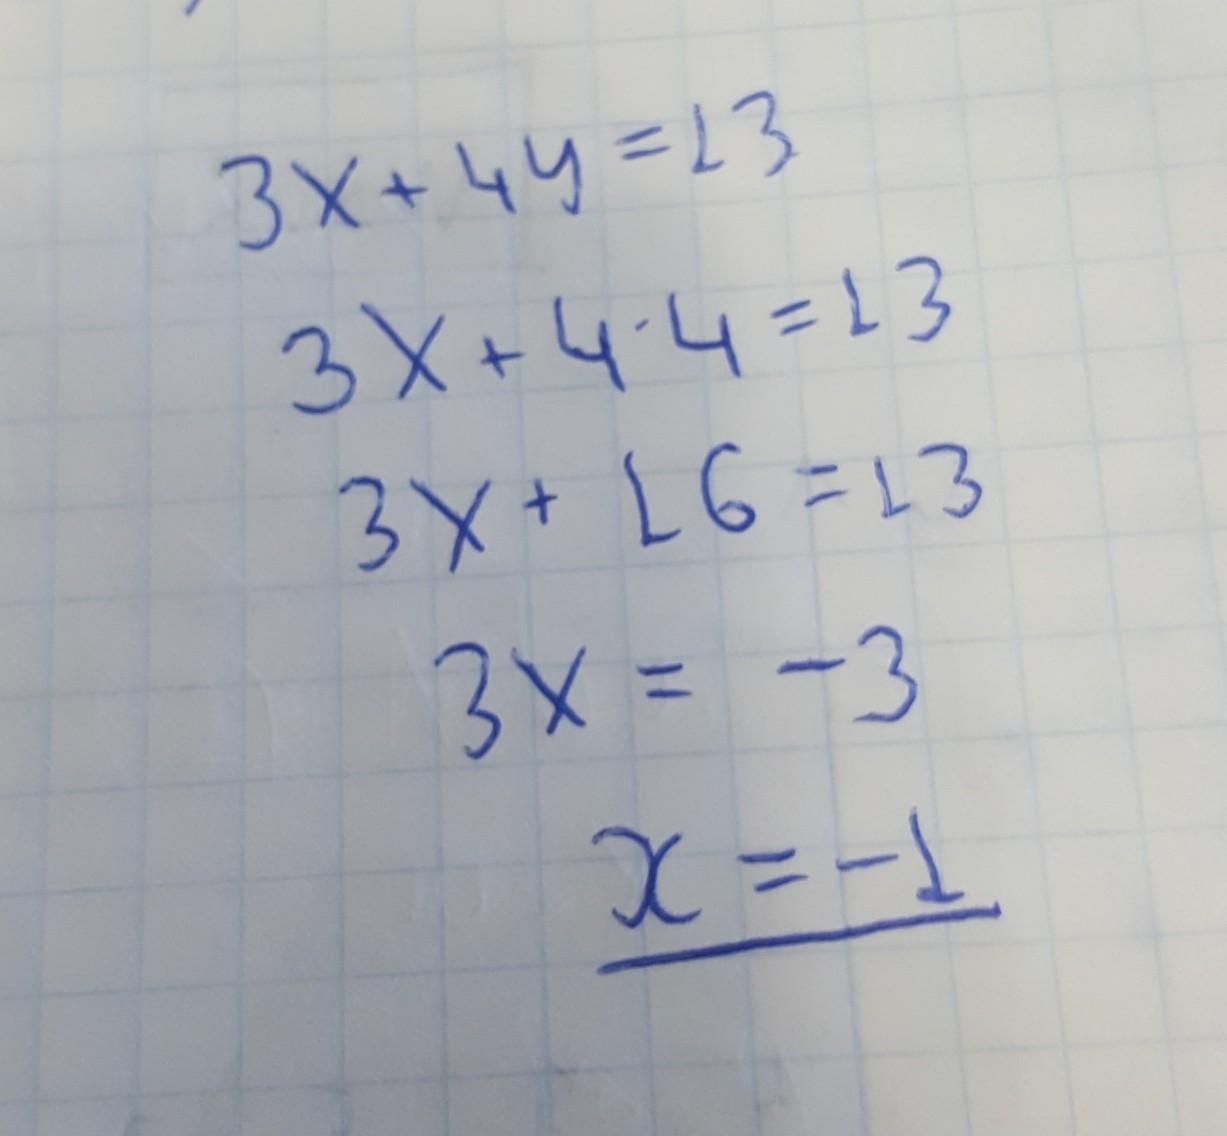 3x + 4y = 13
3x + 4·4 = 13
3x + 16 = 13
3x = -3
x = -1